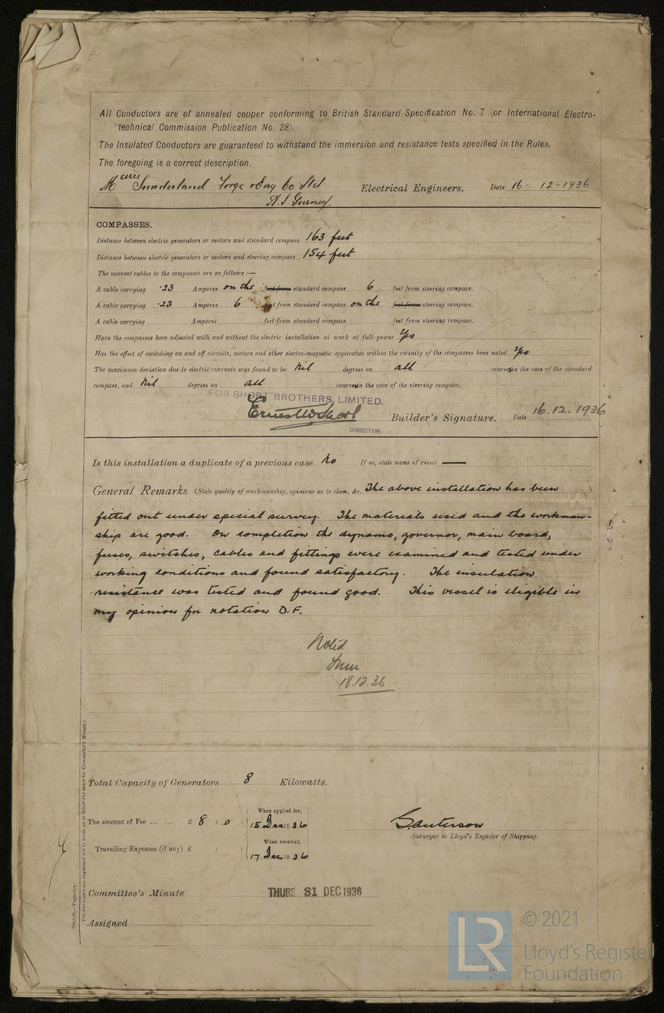 All Conductors are of annealed copper conforming to British Standard Specification No. 7 (or International Electro-
technical Commission Publication No. 28).
The Insulated Conductors are guaranteed to withstand the immersion and resistance tests specified in the Rules.
The foregoing is a correct description.
Messrs Sunderland Forge & Eng Co Ltd Electrical Engineers. Date 16 - 12 - 1936
COMPASSES.
Distance between electric generators or motors and standard compass 163 feet
Distance between electric generators or motors and steering compass 154 feet
The nearest cables to the compasses are as follows:—
A cable carrying .23 Ampères on the feet from standard compass 6 feet from steering compass.
A cable carrying .23 Ampères 6 feet from standard compass on the feet from steering compass.
A cable carrying Ampères feet from standard compass feet from steering compass.
Have the compasses been adjusted with and without the electric installation at work at full power Yes
Has the effect of switching on and off circuits, motors and other electro-magnetic apparatus within the vicinity of the compasses been noted Yes
The maximum deviation due to electric currents was found to be Nil degrees on all courses in the case of the standard
compass, and Nil degrees on all courses in the case of the steering compass.
FOR SHORT BROTHERS, LIMITED.
Builder's Signature. Date 16.12.1936
DIRECTOR.
Is this installation a duplicate of a previous case No If so, state name of vessel —
General Remarks (State quality of workmanship, opinions as to them, &c. The above installation has been
fitted out under special survey. The materials used and the workman-
ship are good. On completion the dynamo, governor, main board,
fuses, switches, cables and fittings were examined and tested under
working conditions and found satisfactory. The insulation
resistance was tested and found good. This vessel is eligible in
my opinion for notation D.F.
Noted
18.12.36
Total Capacity of Generators 8 Kilowatts.
The amount of Fee ... ... £ 8 : 0
When applied for,
15 Dec 1936
Travelling Expenses (if any) £ :
When received,
17 Dec 1936
Surveyor to Lloyd's Register of Shipping.
Committee's Minute THURS 31 DEC 1936
Assigned
LR © 2021
Lloyd's Register
Foundation